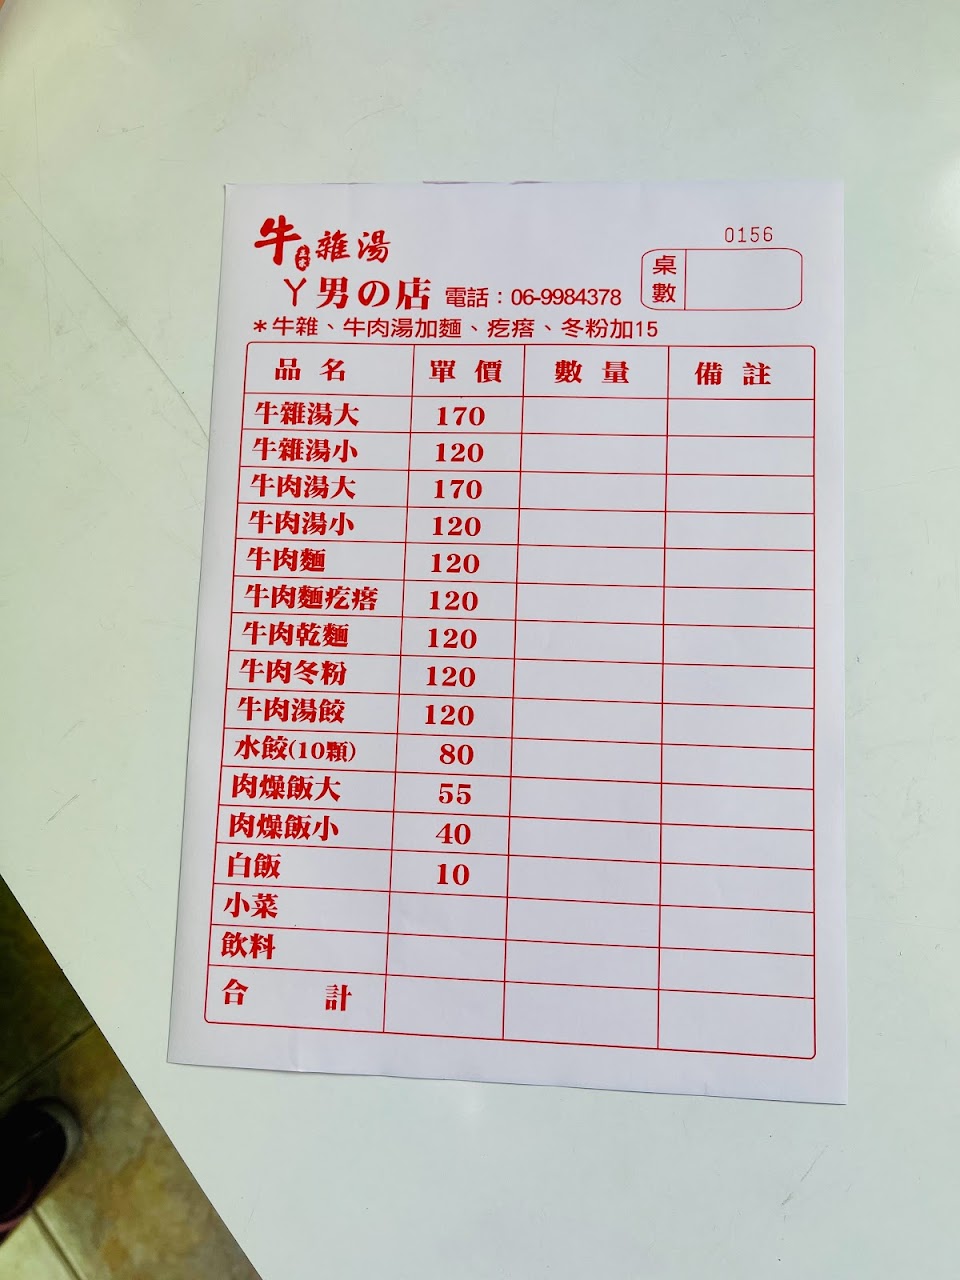 0156
牛雜湯
ㄚ男の店 電話：06-9984378
桌數
＊牛雜、牛肉湯加麵、疙瘩、冬粉加15
品名 單價 數量 備註
牛雜湯大 170
牛雜湯小 120
牛肉湯大 170
牛肉湯小 120
牛肉麵 120
牛肉麵疙瘩 120
牛肉乾麵 120
牛肉冬粉 120
牛肉湯餃 120
水餃(10顆) 80
肉燥飯大 55
肉燥飯小 40
白飯 10
小菜
飲料
合計